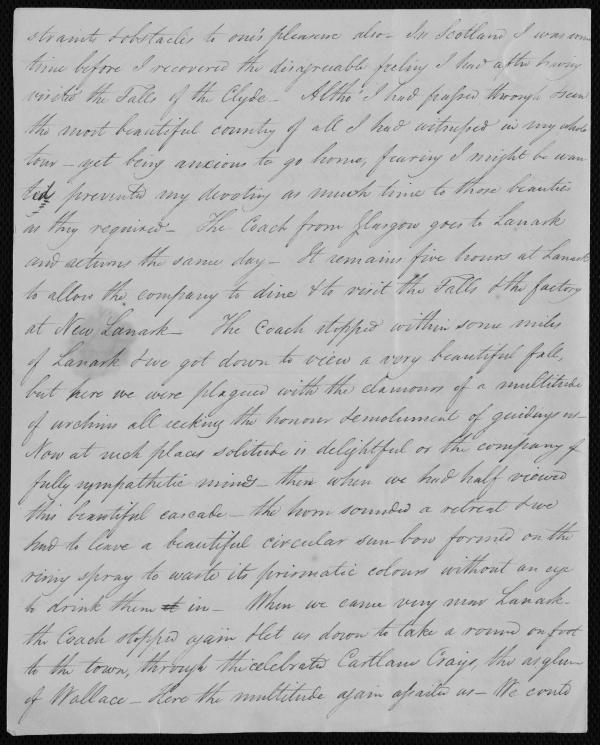 straints & obstacles to one's pleasure also - In Scotland I was some
time before I recovered the disagreeable feeling I had after having
visited the Falls of the Clyde - Altho' I had passed through
the most beautiful country of all I had witnessed in my whole
tour - yet being anxious to go home, fearing I might be wan
ted prevented my devoting as much time to those beauties
as they required - The Coach from Glasgow goes to Lanark
and returns the same day - It remains five hours at Lanark
to allow the company to dine & to visit the Falls & the factory
at New Lanark - The Coach stopped within some miles
of Lanark & we got down to view a very beautiful fall,
but here we were plagued with the clamours of a multitude
of urchins all seeking the honour & emolument of guiding us -
Now at such places solitude is delightful or the company of
fully sympathetic minds - then when we had half viewed
this beautiful cascade - the horn sounded a retreat & we
had to leave a beautiful circular sun bow formed on the
rising spray to waste its prismatic colours without an eye
to drink them it in - When we came very near Lanark -
the Coach stopped again & let us down to take a round on foot
to the town, through the celebrated Cartlane Craigs, the asylum
of Wallace - Here the multitude again assailed us - We could